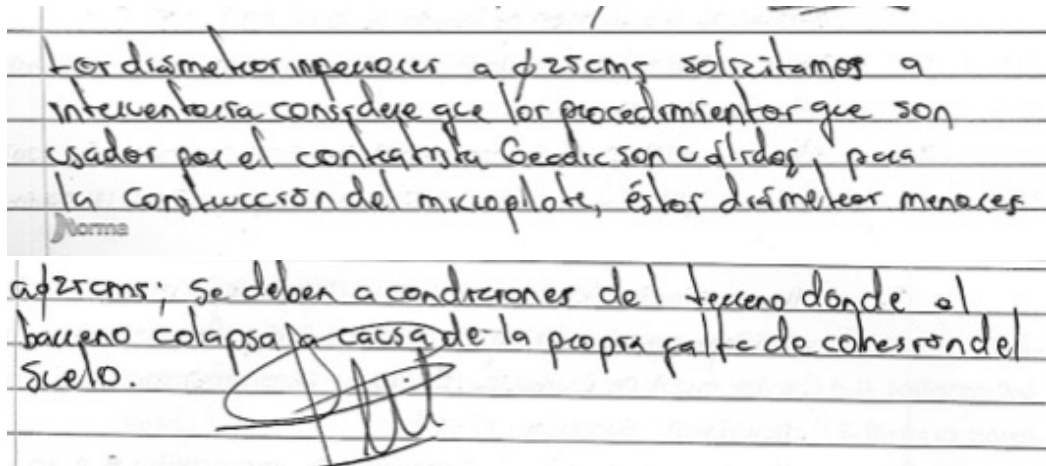 Los diámetros inferiores a ϕ25cms solicitamos a
interventoria considere que los procedimientos que son
usados por el contratista Geodic son válidos, para
la construcción del micropilote, éstos diámetros menores
Norma
a ϕ25cms; se deben a condiciones del terreno donde el
barreno colapsa a causa de la propia falta de cohesión del
suelo.